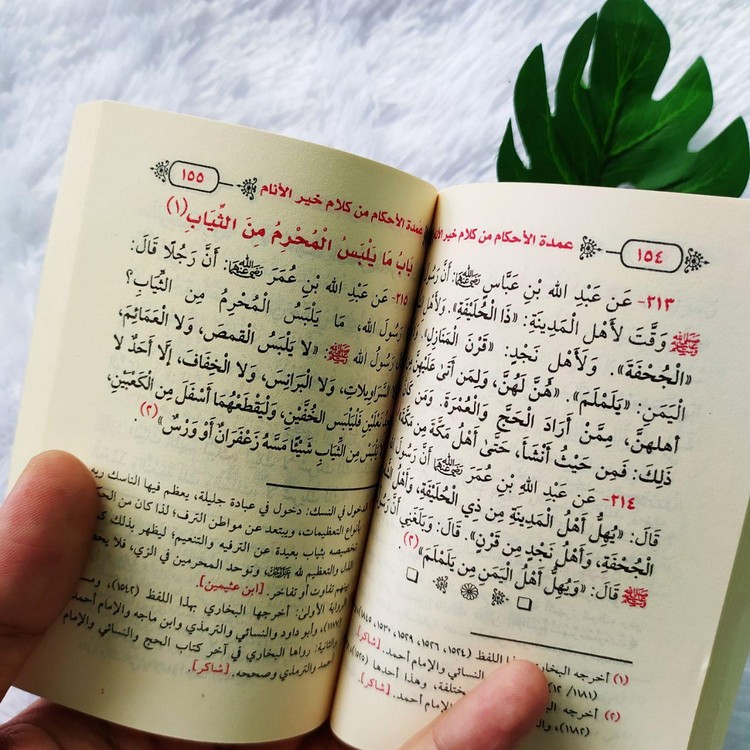 ١٥٤
عمدة الأحكام من كلام خير الأنام
٢١٣- عَن عَبْدِ الله بْنِ عَبَّاسٍ رضي الله عنهما: أَنَّ رَسُولَ
ﷺ وَقَّتَ لِأَهْلِ الْمَدِينَةِ: «ذَا الْحُلَيْفَةِ». وَلِأَهْلِ
«الْجُحْفَةَ». وَلِأَهْلِ نَجْدٍ: «قَرْنَ الْمَنَازِلِ».
الْيَمَنِ: «يَلَمْلَمَ». «هُنَّ لَهُنَّ، وَلِمَن أَتَىٰ عَلَيْهِنَّ
أهلهنَّ، مِمَّنْ أَرَادَ الْحَجَّ وَالْعُمْرَةَ. وَمَن كَانَ
ذَلِكَ: فَمِن حَيْثُ أَنْشَأَ، حَتَّىٰ أَهْلُ مَكَّةَ مِن مَكَّةَ»
٢١٤- عَن عَبْدِ اللَّهِ بْنِ عُمَرَ رضي الله عنهما أَنَّ رَسُولَ
قَالَ: «يُهِلُّ أَهْلُ الْمَدِينَةِ مِن ذِي الْحُلَيْفَةِ، وَأَهْلُ
الْجُحْفَةِ، وَأَهْلُ نَجْدٍ مِن قَرْنٍ». قَالَ: وَبَلَغَنِي أَنَّ رَسُولَ
ﷺ قَالَ: «وَيُهِلُّ أَهْلُ الْيَمَنِ مِن يَلَمْلَمَ» (٢)
(١) أخرجه البخاري بهذا اللفظ (١٥٢٤، ١٥٢٦، ١٥٢٩، ١٥٣٠، ١٨٤٥)
(١١٨١/ ١٢) النسائي والإمام أحمد. [شاكر].
(٢) أخرجه البخاري مختلفة، وهذا أحدها (١٥٢٥)
(١١٨٢)، والإمام أحمد. [شاكر].
١٥٥
عمدة الأحكام من كلام خير الأنام
بَابُ مَا يَلْبَسُ الْمُحْرِمُ مِنَ الثِّيَابِ (١)
٢١٥- عَن عَبْدِ الله بْنِ عُمَرَ رضي الله عنهما: أَنَّ رَجُلًا قَالَ:
رَسُولَ الله، مَا يَلْبَسُ الْمُحْرِمُ مِن الثِّيَابِ؟
رَسُولُ الله ﷺ: «لَا يَلْبَسُ الْقُمَصَ، وَلَا الْعَمَائِمَ،
السَّرَاوِيلَاتِ، وَلَا الْبَرَانِسَ، وَلَا الْخِفَافَ، إِلَّا أَحَدٌ لَا
نَعْلَيْنِ فَلْيَلْبَسِ الْخُفَّيْنِ، وَلْيَقْطَعْهُمَا أَسْفَلَ مِن الْكَعْبَيْنِ،
يَلْبَسْ مِن الثِّيَابِ شَيْئًا مَسَّهُ زَعْفَرَانٌ أَوْ وَرْسٌ» (٢).
الدخول في النسك: دخول في عبادة جليلة، يعظم فيها الناسك ربه
بأنواع التعظيمات، ويبتعد عن مواطن الترف؛ لذا كان من
تخصيصه بثياب بعيدة عن الترفيه والتنعيم؛ ليظهر بذلك
الذل والتعظيم لله ﷻ، وتوحد المحرمين في الزي، فلا
بينهم تفاوت أو تفاخر. [ابن عثيمين].
الرواية الأولى: أخرجها البخاري بهذا اللفظ (١٥٤٢)،
(١١٧٧)، وأبو داود والنسائي والترمذي وابن ماجه والإمام أحمد
والثانية: رواها البخاري في آخر كتاب الحج والنسائي والإمام
أحمد والترمذي وصححه. [شاكر].